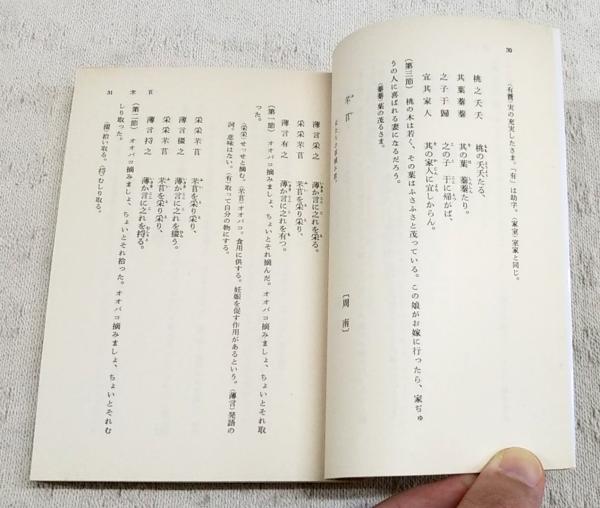 30
(有蕡)実の充実したさま。「有」は助字。(家室)室家と同じ。
桃之夭夭 桃の夭夭たる、
其葉蓁蓁 其の葉 蓁蓁たり。
之子于歸 之の子 于に帰がば、
宜其家人 其の家人に宜しからん。
(第三節) 桃の木は若く、その葉はふさふさと茂っている。この娘がお嫁に行ったら、家ぢゅ
うの人に喜ばれる妻になるだろう。
(蓁蓁)葉の茂るさま。
芣苢 〔周南〕
采采芣苢 芣苢を采り采り、
薄言采之 薄か言に之れを采る。
采采芣苢 芣苢を采り采り、
薄言有之 薄か言に之れを有つ。
(第一節) オオバコ摘みましょ、ちょいとそれ摘んだ。オオバコ摘みましょ、ちょいとそれ取
った。
(采采)せっせと摘む。(芣苢)オオバコ。食用に供する。妊娠を促す作用があるという。(薄言)発語の
詞、意味はない。(有)取って自分の物にする。
采采芣苢 芣苢を采り采り、
薄言掇之 薄か言に之れを掇う。
采采芣苢 芣苢を采り采り、
薄言捋之 薄か言に之れを捋る。
(第二節) オオバコ摘みましょ、ちょいとそれ拾った。オオバコ摘みましょ、ちょいとそれむ
しり取った。
(掇)拾い取る。(捋)むしり取る。
芣苢
31